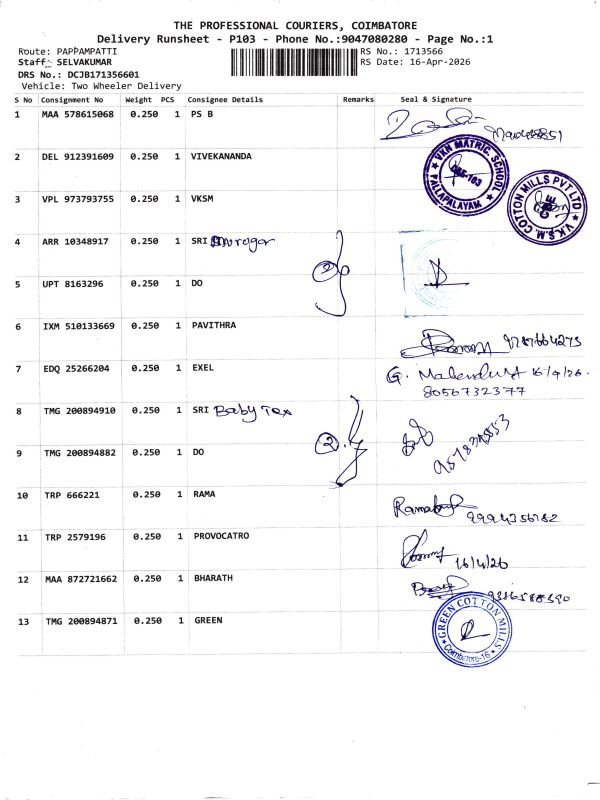 THE PROFESSIONAL COURIERS, COIMBATORE
Delivery Runsheet - P103 - Phone No.:9047080280 - Page No.:1
Route: PAPPAMPATTI
RS No.: 1713566
Staff: SELVAKUMAR
RS Date: 16-Apr-2026
DRS No.: DCJB171356601
Vehicle: Two Wheeler Delivery
S No Consignment No Weight PCS Consignee Details Remarks Seal & Signature
1 MAA 578615068 0.250 1 PS B
2 DEL 912391609 0.250 1 VIVEKANANDA
VKN MATRIC. SCHOOL PALLAPALAYAM
3 VPL 973793755 0.250 1 VKSM
V.K.S.M. COTTON MILLS PVT LTD
4 ARR 10348917 0.250 1 SRI
5 UPT 8163296 0.250 1 DO
6 IXM 510133669 0.250 1 PAVITHRA
7 EDQ 25266204 0.250 1 EXEL G. 16/4/26.
8056732377
8 TMG 200894910 0.250 1 SRI Baby Tex
9 TMG 200894882 0.250 1 DO 2
10 TRP 666221 0.250 1 RAMA
11 TRP 2579196 0.250 1 PROVOCATRO 16/4/26
12 MAA 872721662 0.250 1 BHARATH
13 TMG 200894871 0.250 1 GREEN
GREEN COTTON MILLS Coimbatore-16